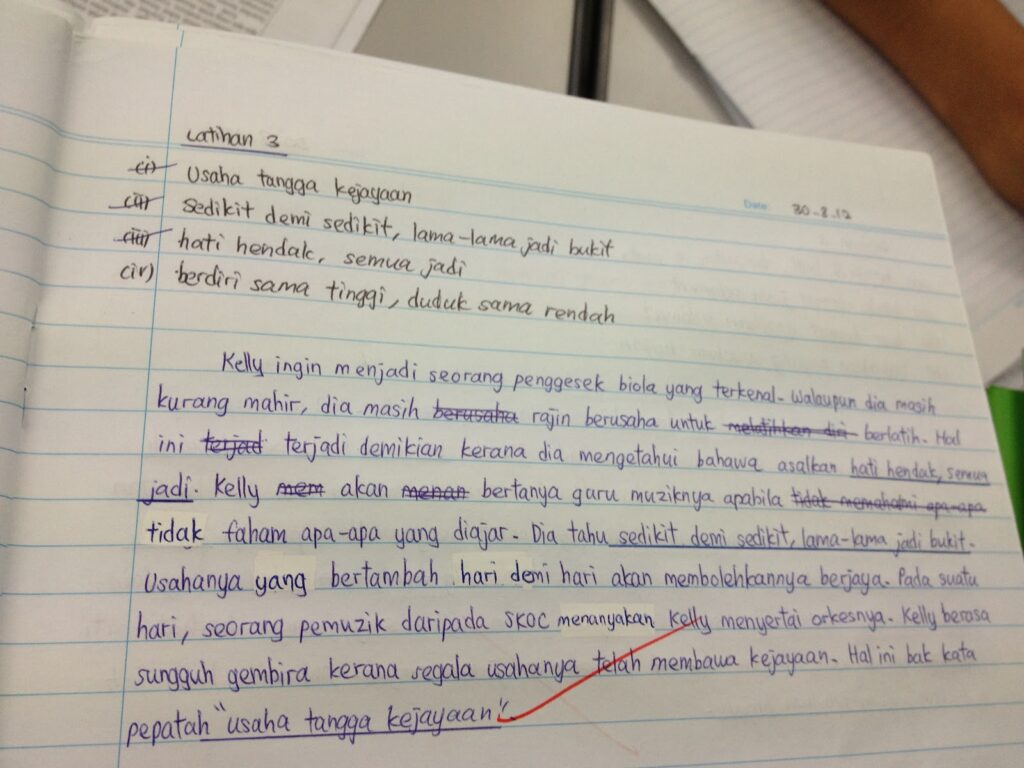 Latihan 3
Date: 30-8.12
(i) Usaha tangga kejayaan
(ii) sedikit demi sedikit, lama-lama jadi bukit
(iii) hati hendak, semua jadi
(iv) berdiri sama tinggi, duduk sama rendah
Kelly ingin menjadi seorang penggesek biola yang terkenal. Walaupun dia masih
kurang mahir, dia masih berusaha rajin berusaha untuk melatihkan diri berlatih. Hal
ini terjad terjadi demikian kerana dia mengetahui bahawa asalkan hati hendak, semua
jadi. Kelly mem akan menan bertanya guru muziknya apabila tidak memahami apa-apa
tidak faham apa-apa yang diajar. Dia tahu sedikit demi sedikit, lama-lama jadi bukit.
Usahanya yang bertambah hari demi hari akan membolehkannya berjaya. Pada suatu
hari, seorang pemuzik daripada SKOC menanyakan Kelly menyertai orkesnya. Kelly berasa
sungguh gembira kerana segala usahanya telah membawa kejayaan. Hal ini bak kata
pepatah "usaha tangga kejayaan".